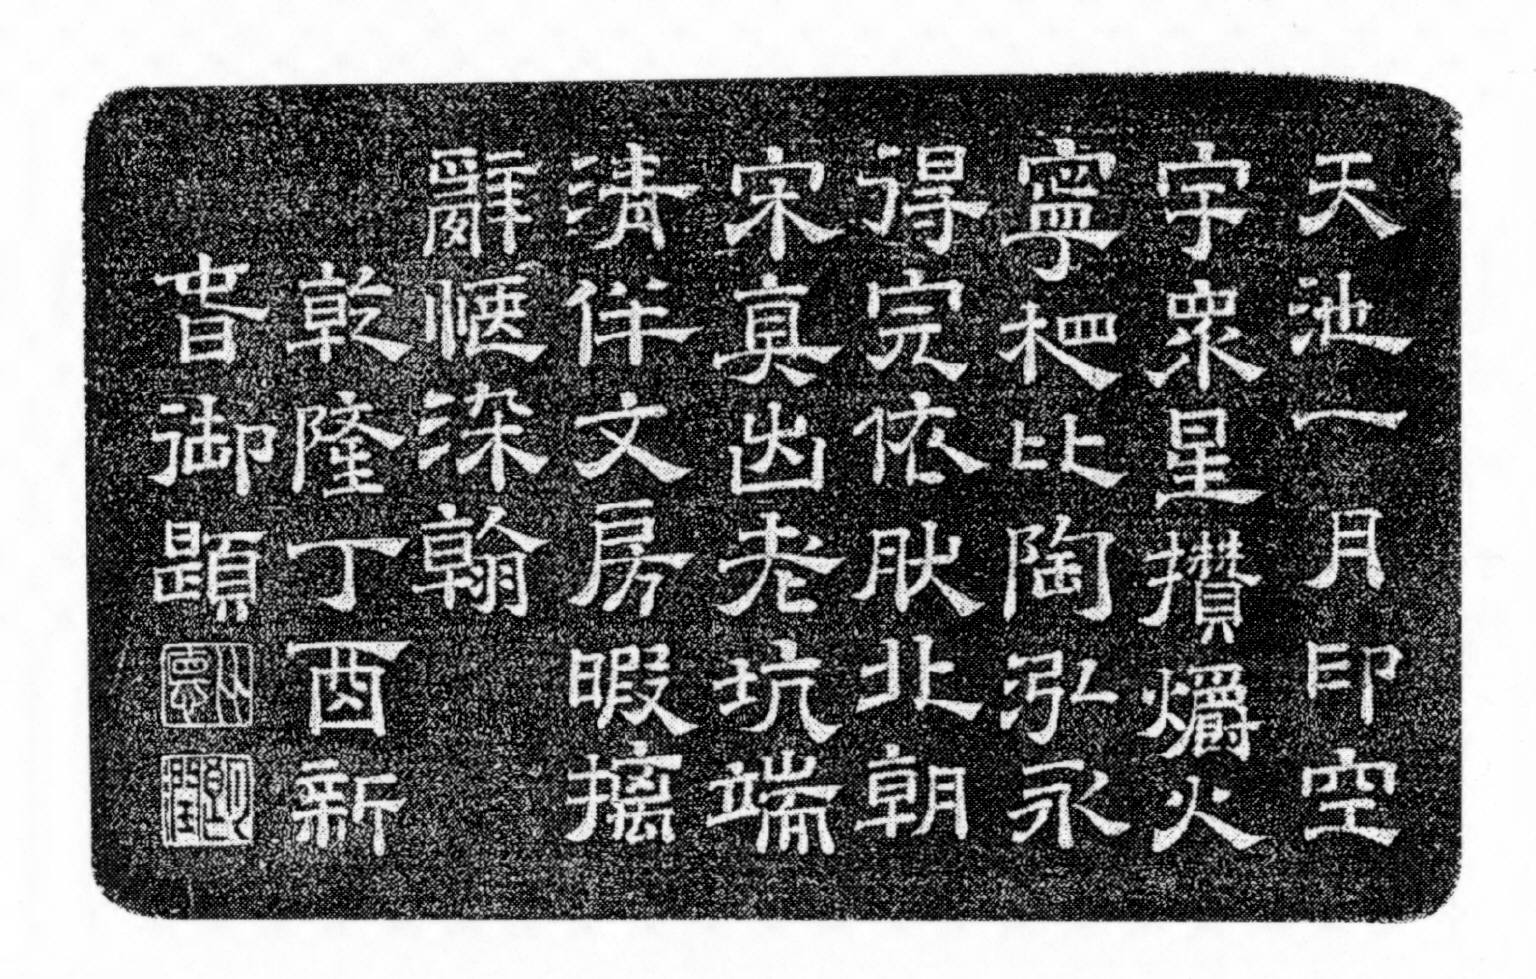 天池一月印空
宇衆星攢爝火
寧相比陶泓永
得完依肰北朝
宋真出老坑端
清伴文房暇摛
辭愜深翰
乾隆丁酉新
春御題
比悳
朗潤